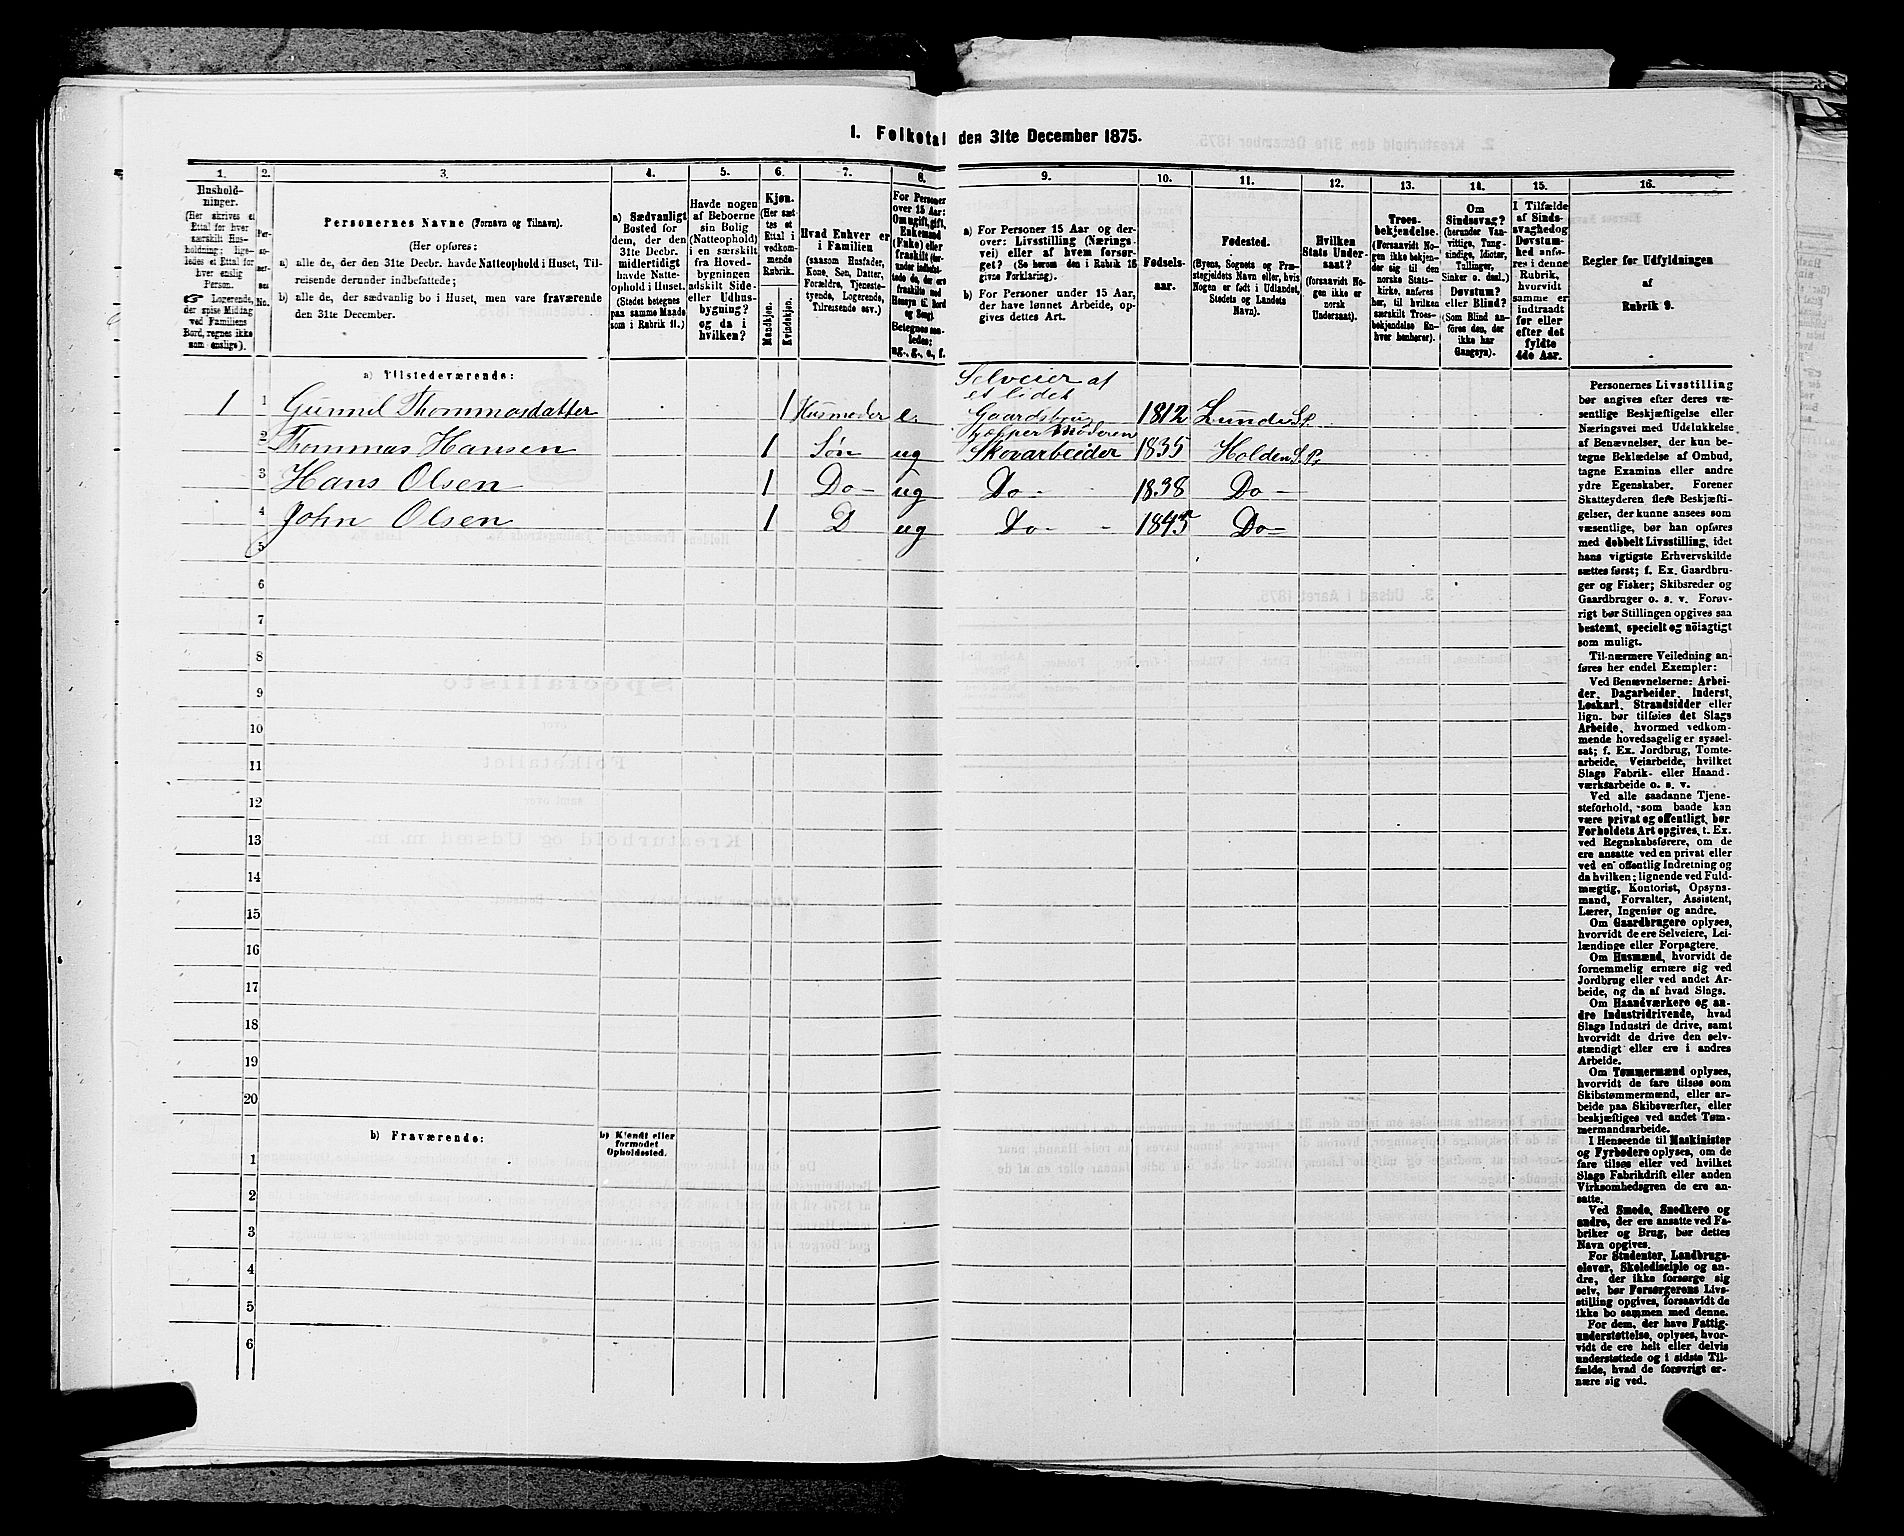 1. Folketal den 31te December 1875.
1. 2. 3. 4. 5. 6. 7. 8. 9. 10. 11. 12. 13. 14. 15. 16.
Hushold-
ninger.
(Her skrives et
Ettal for hver
særskilt Hus-
holdning; lige-
ledes et Ettal for
hver enslig
Person.
☛ Logerende,
der spise Middag
ved Familiens
Bord, regnes ikke
som enslige).
Personernes Navne (Fornavn og Tilnavn).
(Her opføres:
a) alle de, der den 31te Decbr. havde Natteophold i Huset, Til-
reisende derunder indbefattede;
b) alle de, der sædvanlig bo i Huset, men vare fraværende
den 31te December.
a) Sædvanligt
Bosted for
dem, der den
31te Decbr.
midlertidigt
havde Natte-
ophold i Huset.
(Stedet betegnes
paa samme Maade
som i Rubrik 11.)
Havde nogen
af Beboerne
sin Bolig
(Natteophold)
i en særskilt
fra Hoved-
bygningen
adskilt Side-
eller Udhus-
bygning?
og da i
hvilken?
Kjøn.
(Her sæt-
tes et
Ettal i
vedkom-
mende
Rubrik.
Mandkjøn.
Kvindekjøn.
Hvad Enhver er
i Familien
(saasom Husfader,
Kone, Søn, Datter,
Forældre, Tjeneste-
tyende, Logerende,
Tilreisende osv.)
For Personer
over 15 Aar:
Om ugift, gift,
Enkemand
(Enke) eller
fraskilt
Betegnes saa-
ledes:
ug., g., e., f.
a) For Personer 15 Aar og der-
over: Livsstilling (Nærings-
vei) eller af hvem forsør-
get? (Se herom den i Rubrik 16
givne Forklaring).
b) For Personer under 15 Aar,
der have lønnet Arbeide, op-
gives dettes Art.
Fødsels-
aar.
Fødested.
(Byens, Sognets og Præ-
stegjeldets Navn eller, hvis
Nogen er født i Udlandet,
Stedets og Landets
Navn).
Hvilken
Stats Under-
saat?
(forsaavidt No-
gen ikke er
norsk
Undersaat).
Troes-
bekjendelse.
(Forsaavidt No-
gen ikke bekjen-
der sig til den
norske Stats-
kirke, anføres
her, til hvilken
særskilt Troes-
bekjendelse En-
hver henhører).
Om
Sindssvag?
(herunder Van-
vittige, Tung-
sindige, Idioter,
Tullinger,
Sinker o. desl.)
Døvstum?
eller Blind?
(Som Blind an-
føres den, der
ikke har
Gangsyn).
I Tilfælde
af Sinds-
svaghed og
Døvstum-
hed anfø-
res i denne
Rubrik,
hvorvidt
samme er
indtraadt
før eller
efter det
fyldte
4de Aar.
Regler for Udfyldningen
af
Rubrik 9.
a) Tilstedeværende:
1 1 Gunnil Thommasdatter 1 Husmoder e. Selveier af et lidet Gaardsbrug 1812 Lunde S. P.
2 Thommas Hansen 1 Søn ug hjælper Moderen Skovarbeider 1835 Holden S. P.
3 Hans Olsen 1 Do- ug Do- - 1838 Do-
4 John Olsen 1 D ug Do- - 1845 Do-
5
6
7
8
9
10
11
12
13
14
15
16
17
18
19
20
b) Fraværende:
b) Kjendt eller
formodet
Opholdssted.
1
2
3
4
5
6
Personernes Livsstilling
bør angives efter deres væ-
sentlige Beskjæftigelse eller
Næringsvei med Udelukkelse
af Benævnelser, der kun be-
tegne Beklædelse af Ombud,
tagne Examina eller andre
ydre Egenskaber. Forener
Skatteyderen flere Beskjæfti-
gelser, der kunne ansees som
væsentlige, bør han opføres
med dobbelt Livsstilling, idet
hans vigtigste Erhvervskilde
sættes først; f. Ex. Gaardbru-
ger og Fisker; Skibsreder og
Gaardbruger o. s. v. Forøv-
rigt bør Stillingen opgives saa
bestemt, specielt og nøiagtigt
som muligt.
Til nærmere Veiledning an-
føres her endel Exempler:
Ved Benævnelserne: Arbei-
der, Dagarbeider, Inderst,
Løskarl, Strandsidder eller
lign. bør tilføies det Slags
Arbeide, hvormed vedkom-
mende hovedsagelig er syssel-
sat; f. Ex. Jordbrug, Tomte-
arbeide, Veiarbeide, hvilket
Slags Fabrik- eller Haand-
værksarbeide o. s. v.
Ved alle saadanne Tjene-
steforhold, som baade kan
være privat og offentligt, bør
Forholdets Art opgives, t. Ex.
ved Regnskabsførere, om de
ere ansatte ved en privat eller
ved en offentlig Indretning og
da hvilken; lignende ved Fuld-
mægtig, Kontorist, Opsyns-
mand, Forvalter, Assistent,
Lærer, Ingeniør og andre.
Om Gaardbrugere oplyses,
hvorvidt de ere Selveiere, Lei-
lændinge eller Forpagtere.
Om Husmænd, hvorvidt de
fornemmelig ernære sig ved
Jordbrug eller ved andet Ar-
beide, og da af hvad Slags.
Om Haandværkere og an-
dre Industridrivende, hvad
Slags Industri de drive, samt
hvorvidt de drive den selv-
stændigt eller ere i andres
Arbeide.
Om Tømmermænd oplyses,
hvorvidt de fare tilsøs som
Skibstømmermænd, eller ar-
beide paa Skibsværfter, eller
beskjæftiges ved andet Tøm-
mermandsarbeide.
I Henseende til Maskinister
og Fyrbødere oplyses, om de
fare tilsøs eller ved hvilket
Slags Fabrikdrift eller anden
Virksomhedsgren de ere an-
satte.
Ved Smede, Snedkere og
andre, der ere ansatte ved Fa-
briker og Brug, bør dettes
Navn opgives.
For Studenter, Landbrugs-
elever, Skoledisciple og an-
dre, der ikke forsørge sig
selv, bør Forsørgerens Livs-
stilling opgives, forsaavidt de
ikke bo sammen med denne.
For dem, der have Fattig-
understøttelse, oplyses, hvor-
vidt de ere helt eller delvis
understøttede og i sidste Til-
fælde, hvad de forøvrigt er-
nære sig ved.